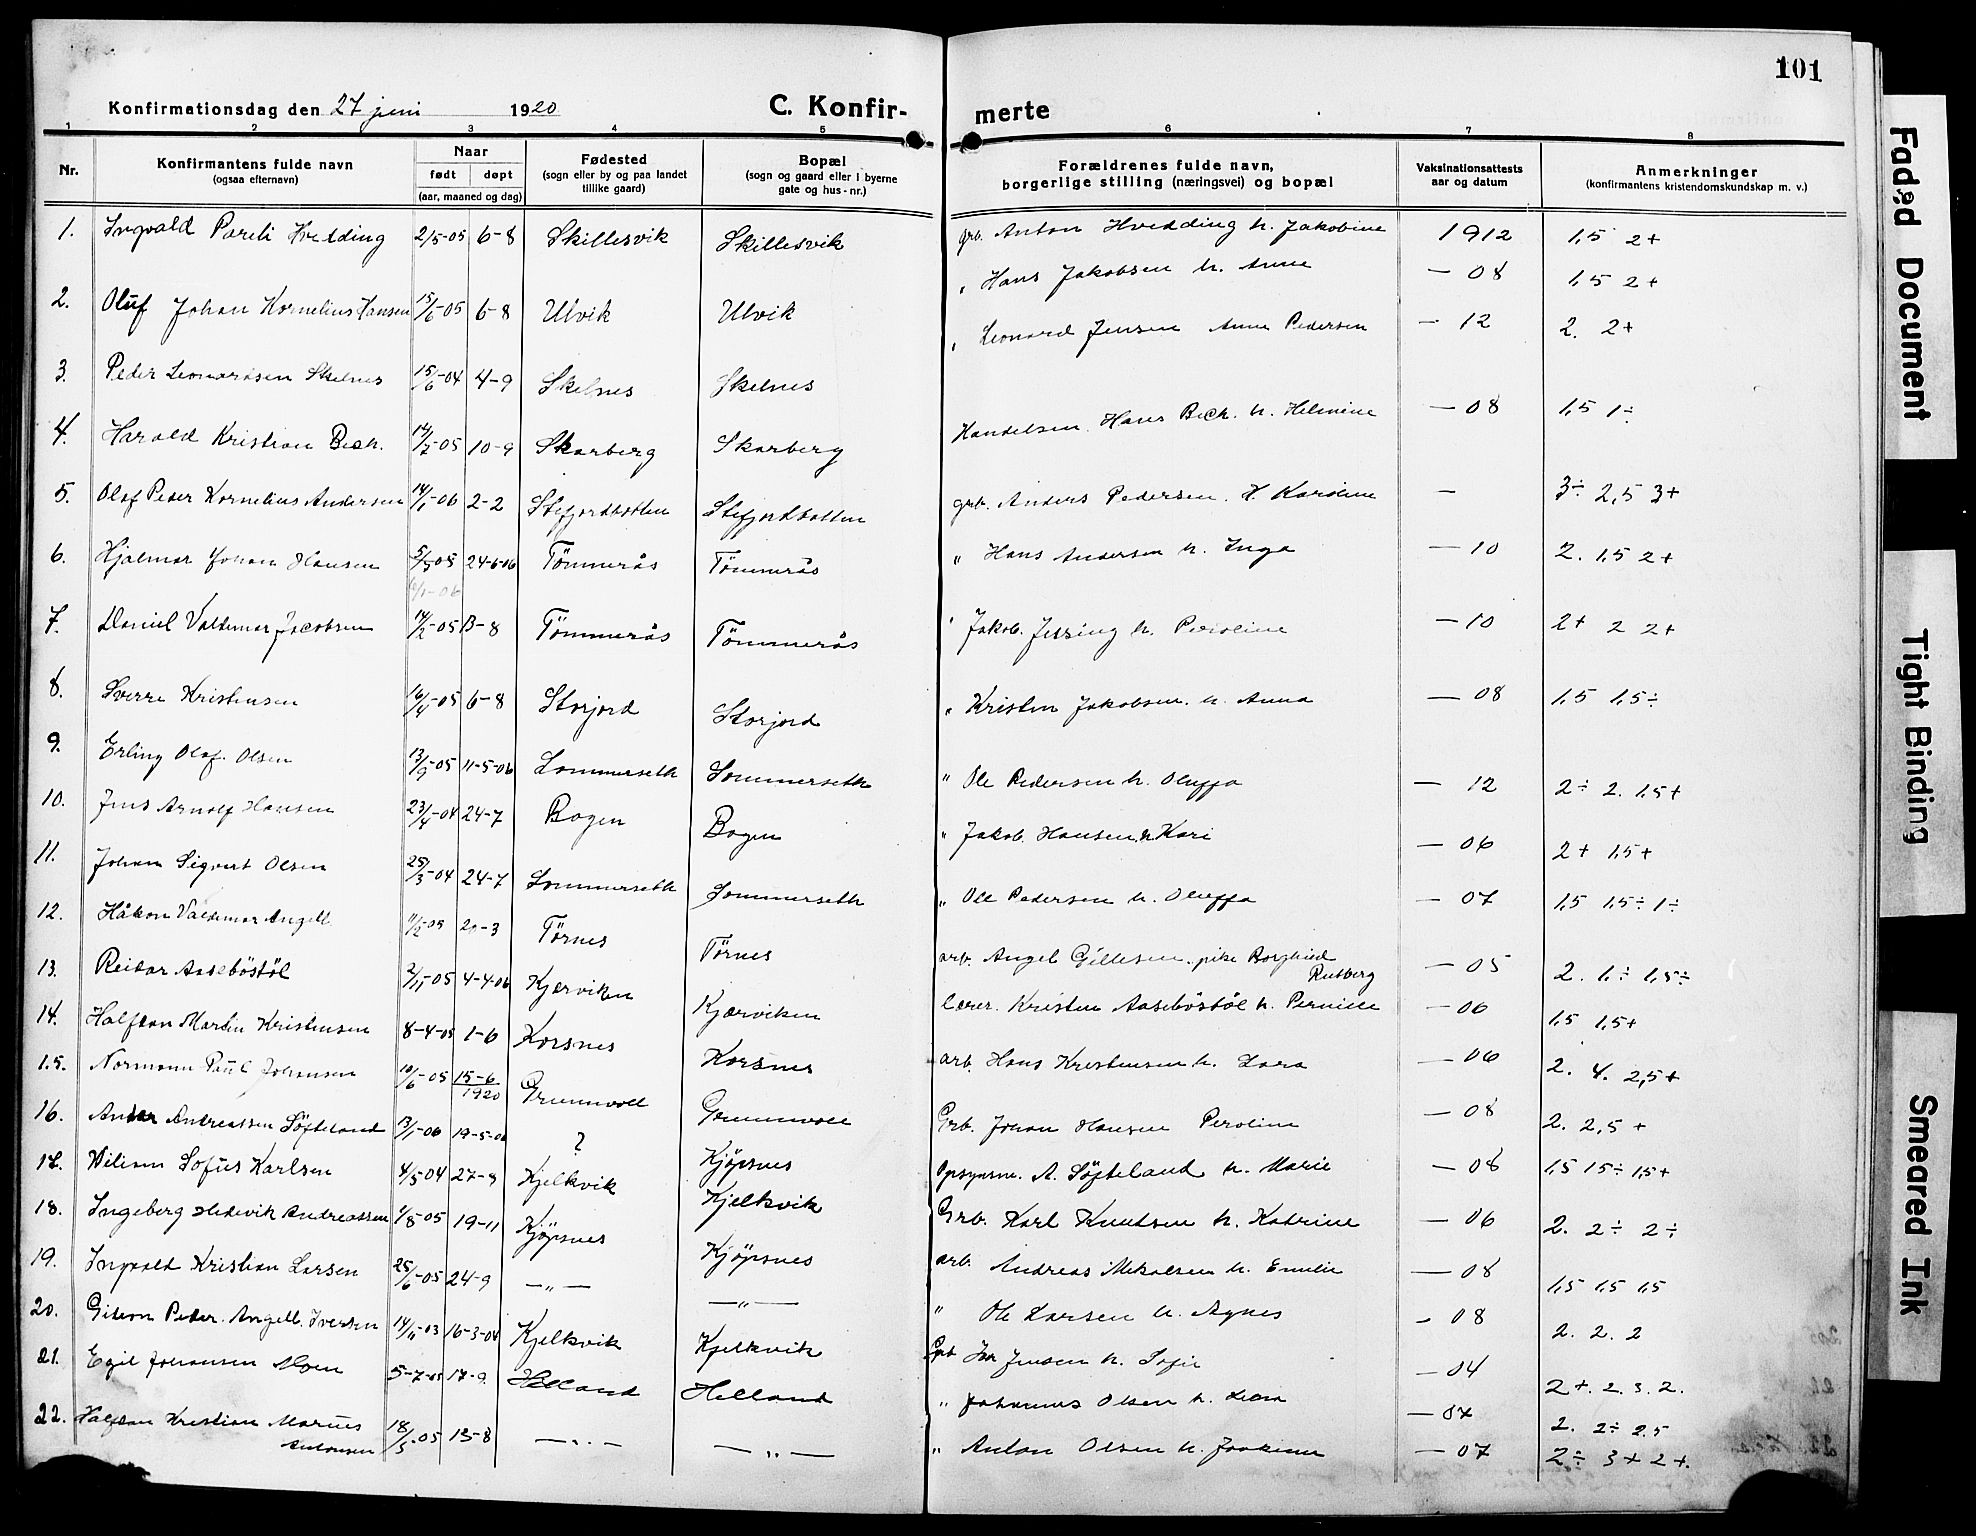 101
Konfirmationsdag den 27 juni 1920 C. Konfir- merte
1 2 3 4 5 6 7 8
Nr. Konfirmantens fulde navn (ogsaa efternavn) Naar født døpt (aar, maaned og dag) Fødested (sogn eller by og paa landet tillike gaard) Bopæl (sogn og gaard eller i byerne gate og hus-nr.) Forældrenes fulde navn, borgerlige stilling (næringsvei) og bopæl Vaksinationsattests aar og datum Anmerkninger (konfirmantens kristendomskundskap m. v.)
1. Ingvald Pareli Hvedding 2/5-05 6-8 Skillesvik Skillesvik grb. Anton Hvedding h. Jakobine 1912 1,5 2+
2. Oluf Johan Kornelius Hansen 15/6-05 6-8 Ulvik Ulvik " Hans Jakobsen h. Anne - 08 1,5 2+
3. Peder Leonardsen Skelnes 15/6-04 4-9 Skelnes Skelnes " Leonard Jensen Anne Pedersen - 12 2. 2+
4. Harald Kristian Bech. 14/7-05 10-9 Skarberg Skarberg Handelsm. Hans Bech. h. Helmine - 08 1,5 1÷
5. Olaf Peder Kornelius Andersen 14/1-06 2-2 Stefjordbotten Stefjordbotten grb. Anders Pedersen. H Karoline - 3÷ 2,5 3+
6. Hjalmar Johan Hansen 5/5-05 24-6-06 Tømmerås Tømmerås " Hans Andersen h. Inga - 10 2. 1,5 2+
7. Daniel Valdemar Jacobsen 14/2-05 13-8 Tømmerås Tømmerås " Jakob. Jessing h. Peroline - 10 2+ 2 2+
8. Sverre Kristensen 16/4-05 6-8 Storjord Storjord " Kristen Jakobsen. h. Anna - 08 1,5 1,5÷
9. Erling Olaf. Olsen 13/9-05 11-5-06 Sommerseth Sommerseth " Ole Pedersen h. Oluffa - 12 2÷ 2. 1,5+
10. Jens Arnolf Hansen 23/4-04 24-7 Bogen Bogen " Jakob. Hansen h Kari - 06 2+ 1,5+
11. Johan Sigvart Olsen 25/3-04 24-7 Sommerseth Sommerseth " Ole Pedersen h. Oluffa - 07 1,5 1,5÷ 1÷
12. Håkon Valdemar Angell 11/2-05 20-3 Tørnes Tørnes arb. Angel Gillesen. pike Borghild Rusberg - 05 2. 1÷ 1,5÷
13. Reidar Aasebøstøl 2/11-05 4-4-06 Kjærviken Kjærviken Lærer. Kristen Aasebøstøl h. Pernille - 06 1,5 1,5+
14. Halfdan Martin Kristensen 8-4-05 1-6 Korsnes Korsnes arb. Hans Kristensen h. Lara - 06 2. 4. 2,5+
15. Normann Paul Johansen 10/6-05 15-6 1920 Grunnvoll Grunnvoll Grb. Johan Hansen Peroline - 08 2. 2,5 +
16. Andor Andreassen Søfteland 13/1-06 19-5-06 ? Kjøpsnes Opsynsm. A. Søfteland h. Marie - 08 1,5 1,5÷ 1,5+
17. Wiliam Sofus Karlsen 4/5 04 27-8 Kjelkvik Kjelkvik Grb. Karl Knutsen h. Katrine - 06 2. 2÷ 2÷
18. Ingeberg Hedevik Andreassen 1/8-05 19-11 Kjøpsnes Kjøpsnes arb. Andreas Mikalsen h. Emilie - 08 1,5 1,5 1,5
19. Ingvald Kristian Larsen 25/6-05 24-9 -"- -"- " Ole Larsen h. Agnes - 08 2. 2. 2
20. Gideon Peder. Angell. Iversen 14/11-03 16-3-04 Kjelkvik Kjelkvik Grb Jensen h. Sofie - 04 2+. 2. 3. 2.
21. Egil Johansen Moen 5-7-05 17-9 Helland Helland " Johannes Olsen h. - 07 2. 2÷ 2.5
22. Halfdan Kristian Marius Antonsen 18/5-05 13-8 -"- -"- " Anton Olsen h. - 07 2÷ 3+ 2+.
Faded Document
Tight Binding
Smeared Ink